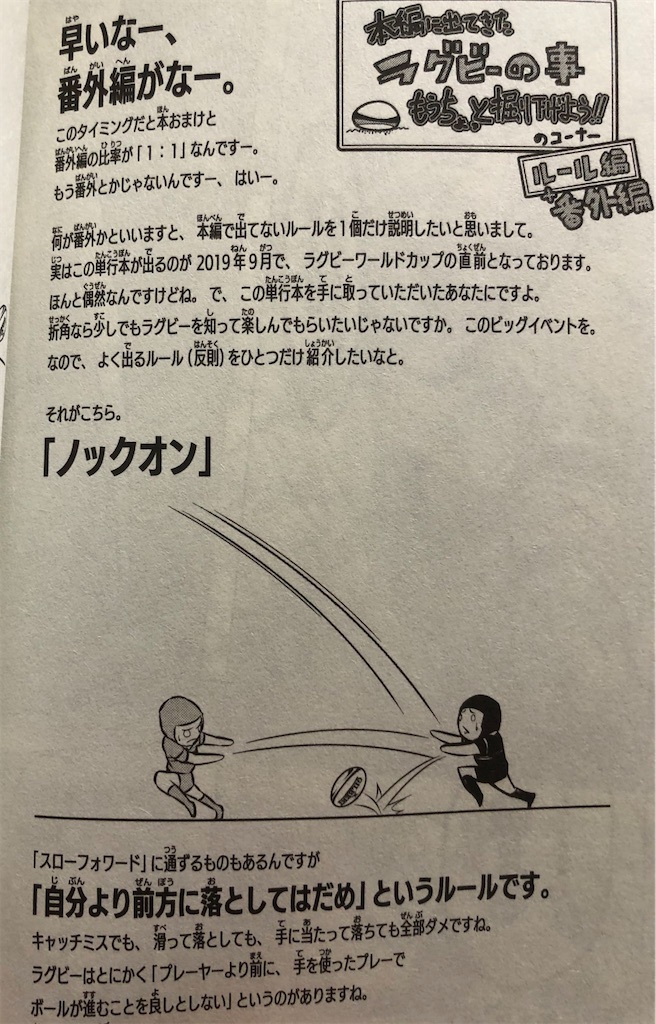 早いなー、
番外編がなー。
本編に出てきた
ラグビーの事
もうちょっと掘り下げよう!!
のコーナー
ルール編
+番外編
このタイミングだと本おまけと
番外編の比率が「1：1」なんですー。
もう番外とかじゃないんですー、はいー。
何が番外かといいますと、本編で出てないルールを1個だけ説明したいと思いまして。
実はこの単行本が出るのが2019年9月で、ラグビーワールドカップの直前となっております。
ほんと偶然なんですけどね。で、この単行本を手に取っていただいたあなたにですよ。
折角なら少しでもラグビーを知って楽しんでもらいたいじゃないですか。このビッグイベントを。
なので、よく出るルール（反則）をひとつだけ紹介したいなと。
それがこちら。
「ノックオン」
「スローフォワード」に通ずるものもあるんですが
「自分より前方に落としてはだめ」というルールです。
キャッチミスでも、滑って落としても、手に当たって落ちても全部ダメですね。
ラグビーはとにかく「プレーヤーより前に、手を使ったプレーで
ボールが進むことを良しとしない」というのがありますね。